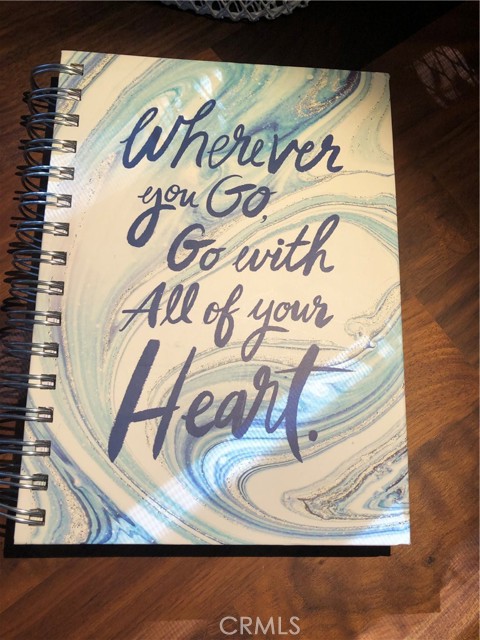 Wherever
you Go,
Go with
All of your
Heart.
CRMLS